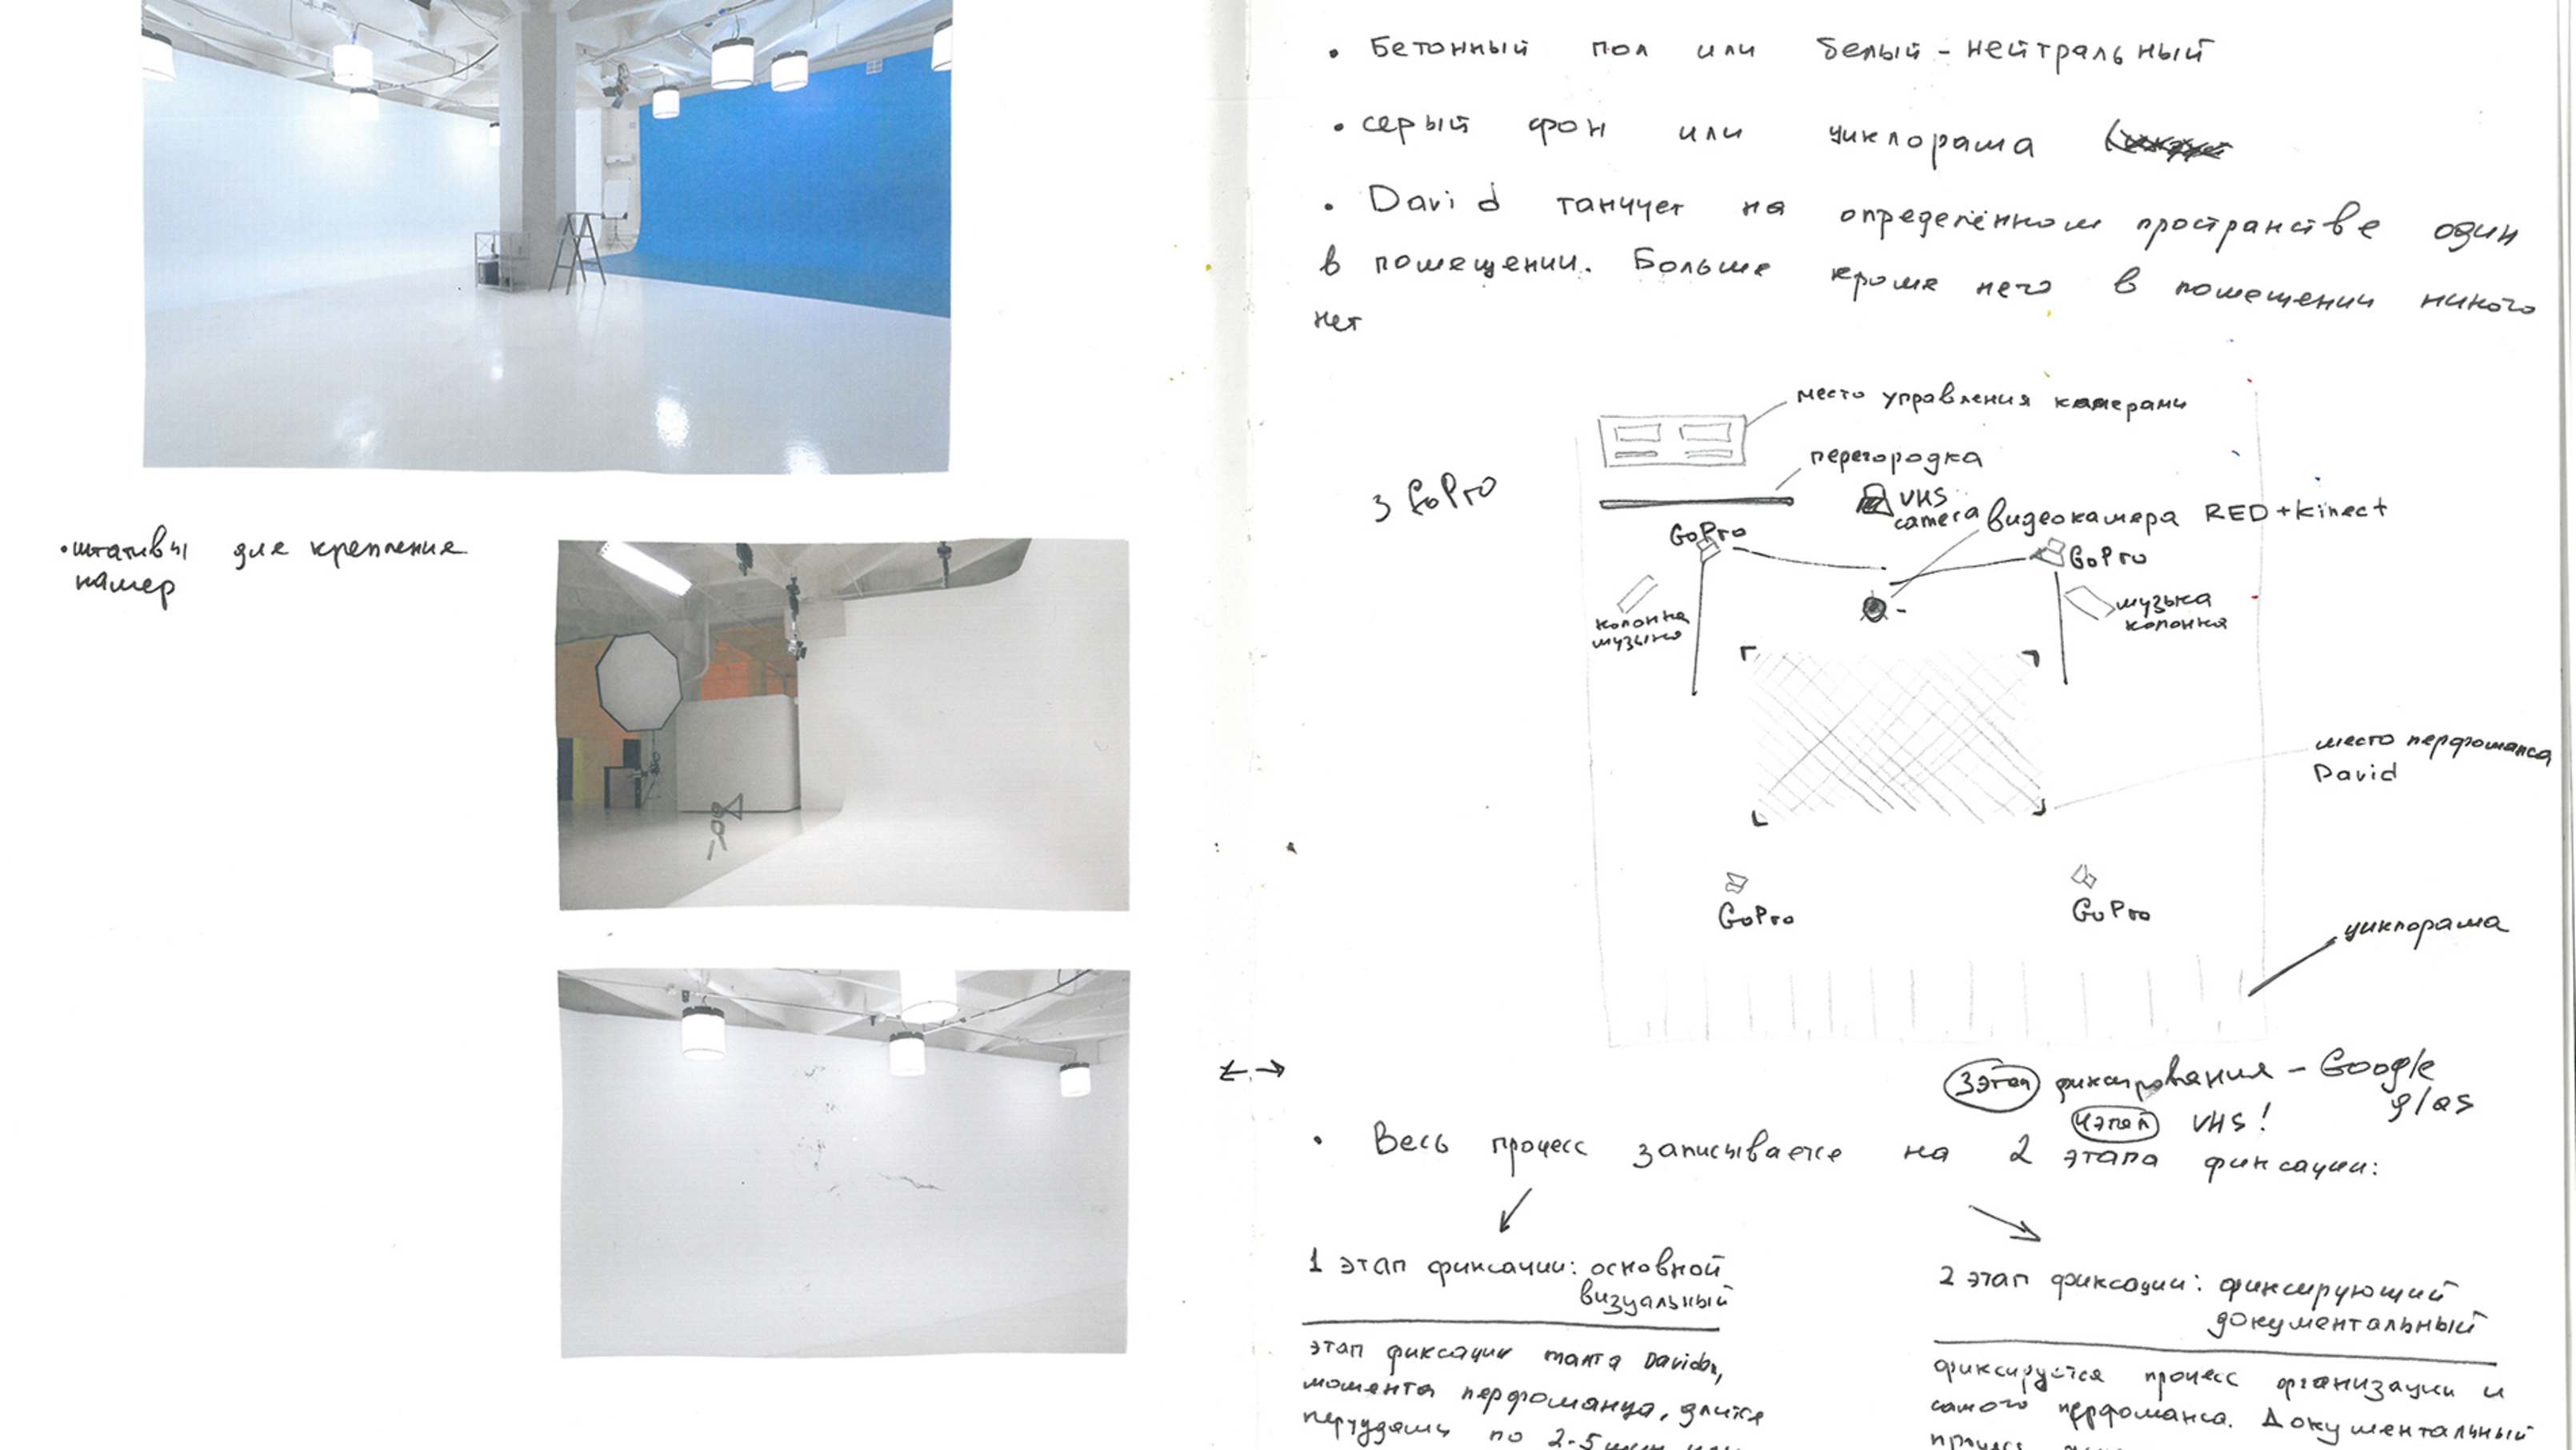 • штативы для крепления
камер
• Бетонный пол или белый - нейтральный
• серый фон или циклорама
• David танцует на определённом пространстве один
в помещении. Больше кроме него в помещении никого
нет
место управления камерами
перегородка
3 GoPro
VHS
camera
видеокамера RED + Kinect
GoPro
GoPro
колонка
музыка
музыка
колонка
место перфоманса
David
GoPro
GoPro
циклорама
3 этап фиксирования - Google
glas
4 этап VHS!
• Весь процесс записывается на 2 этапа фиксации:
1 этап фиксации: основной
визуальный
2 этап фиксации: фиксирующий
документальный
этап фиксации David,
момента перфоманца, длится
по 2-5 мин
фиксируется процесс организации и
самого перфоманса. Документальный
процесс